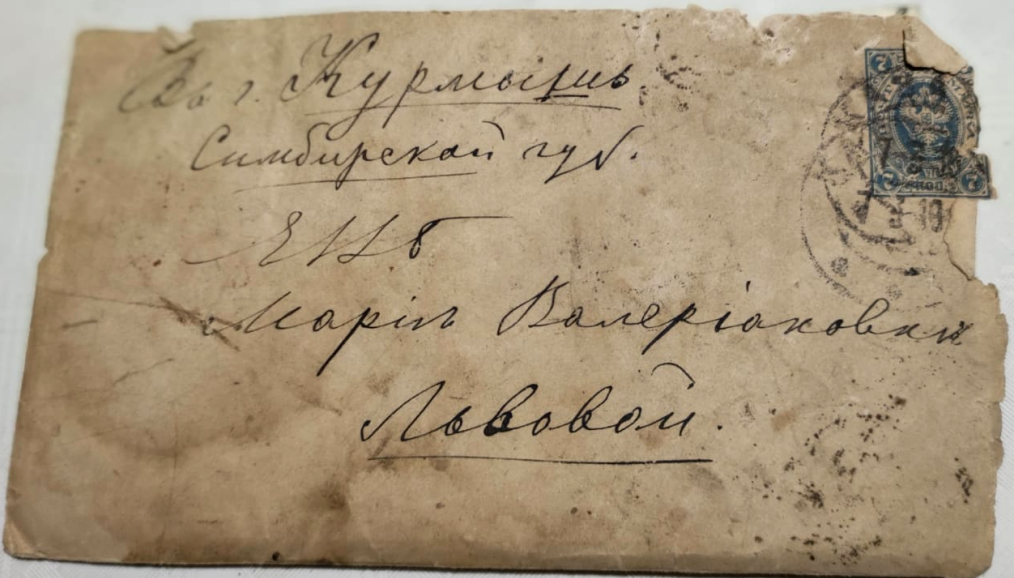 Въ г. Курмышъ
Симбирской губ.
ЕВБ
Маріи Валеріановнѣ
Львовой.
7
7
7
10